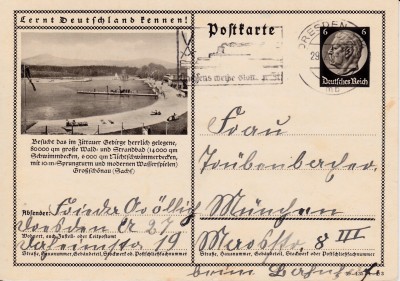 Lernt Deutschland kennen!
Postkarte
6 6
Deutsches Reich
DRESDEN
29
Besucht das im Zittauer Gebirge herrlich gelegene,
80000 qm große Wald- und Strandbad (14000 qm
Schwimmbecken, 6000 qm Nichtschwimmerbecken,
mit 10 m-Sprungturm und modernen Wasserspielen)
Großschönau (Sachs)
Frau
Troubenbacher
München
Marsstr. 8 III
beim Bahnhof
Absender: Frieda
Dresden A 27
19
Wohnort, auch Zustell- oder Leitpostamt
Straße, Hausnummer, Gebäudeteil, Stockwerk od. Postschließfachnummer
Straße, Hausnummer, Gebäudeteil, Stockwerk oder Postschließfachnummer